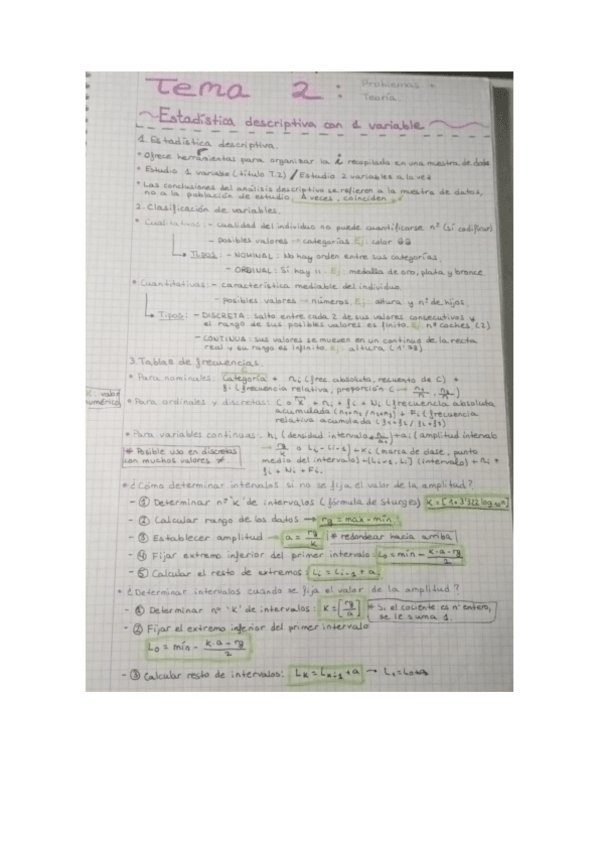 Tema 2 : Problemas -
Teoría
~Estadística descriptiva con 1 variable~
1. Estadística descriptiva.
* Ofrece herramientas para organizar la i recopilada en una muestra de datos
* Estudio 1 variable (título T.2) / Estudio 2 variables a la vez
* Las conclusiones del análisis descriptivo se refieren a la muestra de datos,
no a la población de estudio. A veces, coinciden
2. Clasificación de variables.
* Cualitativas: - cualidad del individuo no puede cuantificarse nº (sí codificar)
- posibles valores → categorías. Ej: color
Tipos: - NOMINAL: No hay orden entre sus categorías.
- ORDINAL: Sí hay 11. Ej: medalla de oro, plata y bronce
* Cuantitativas: - característica mediable del individuo.
- posibles valores → números. Ej: altura y nº de hijos.
Tipos: - DISCRETA: salto entre cada 2 de sus valores consecutivos y
el rango de sus posibles valores es finito. Ej: nº coches (2)
- CONTINUA: sus valores se mueven en un continuo de la recta
real y su rango es infinito. Ej: altura (1'78)
3. Tablas de frecuencias.
* Para nominales: Categoría + ni (frec. absoluta, recuento de C) +
fi (frecuencia relativa, proporción C →
valor
numérico
* Para ordinales y discretas: C o x + ni + fi + Ni (frecuencia absoluta
acumulada + Fi (frecuencia
relativa acumulada
* Para variables continuas: hi (densidad intervalo + ai (amplitud intervalo
* Posible uso en discretas
con muchos valores ≠
→ rg/k o Li - Li-1) + xi (marca de clase, punto
medio del intervalo) + [Li-1, Li] (intervalo) + ni +
fi + Ni + Fi.
* ¿Cómo determinar intervalos si no se fija el valor de la amplitud?
- ① Determinar nº 'k' de intervalos (fórmula de Sturges) k = [1+3'322 log10 n]
- ② Calcular rango de los datos → rg = max - mín
- ③ Establecer amplitud → a = rg/k * redondear hacia arriba
- ④ Fijar extremo inferior del primer intervalo: L0 = mín - k·a-rg/2
- ⑤ Calcular el resto de extremos: Li = Li-1 + a
* ¿Determinar intervalos cuando se fija el valor de la amplitud?
- ① Determinar nº 'k' de intervalos: k = [rg/a] * Si el cociente es nº entero,
se le suma 1.
- ② Fijar el extremo inferior del primer intervalo
L0 = mín - k·a-rg/2
- ③ Calcular resto de intervalos: Lk = Lk-1 + a → L1 = L0+a